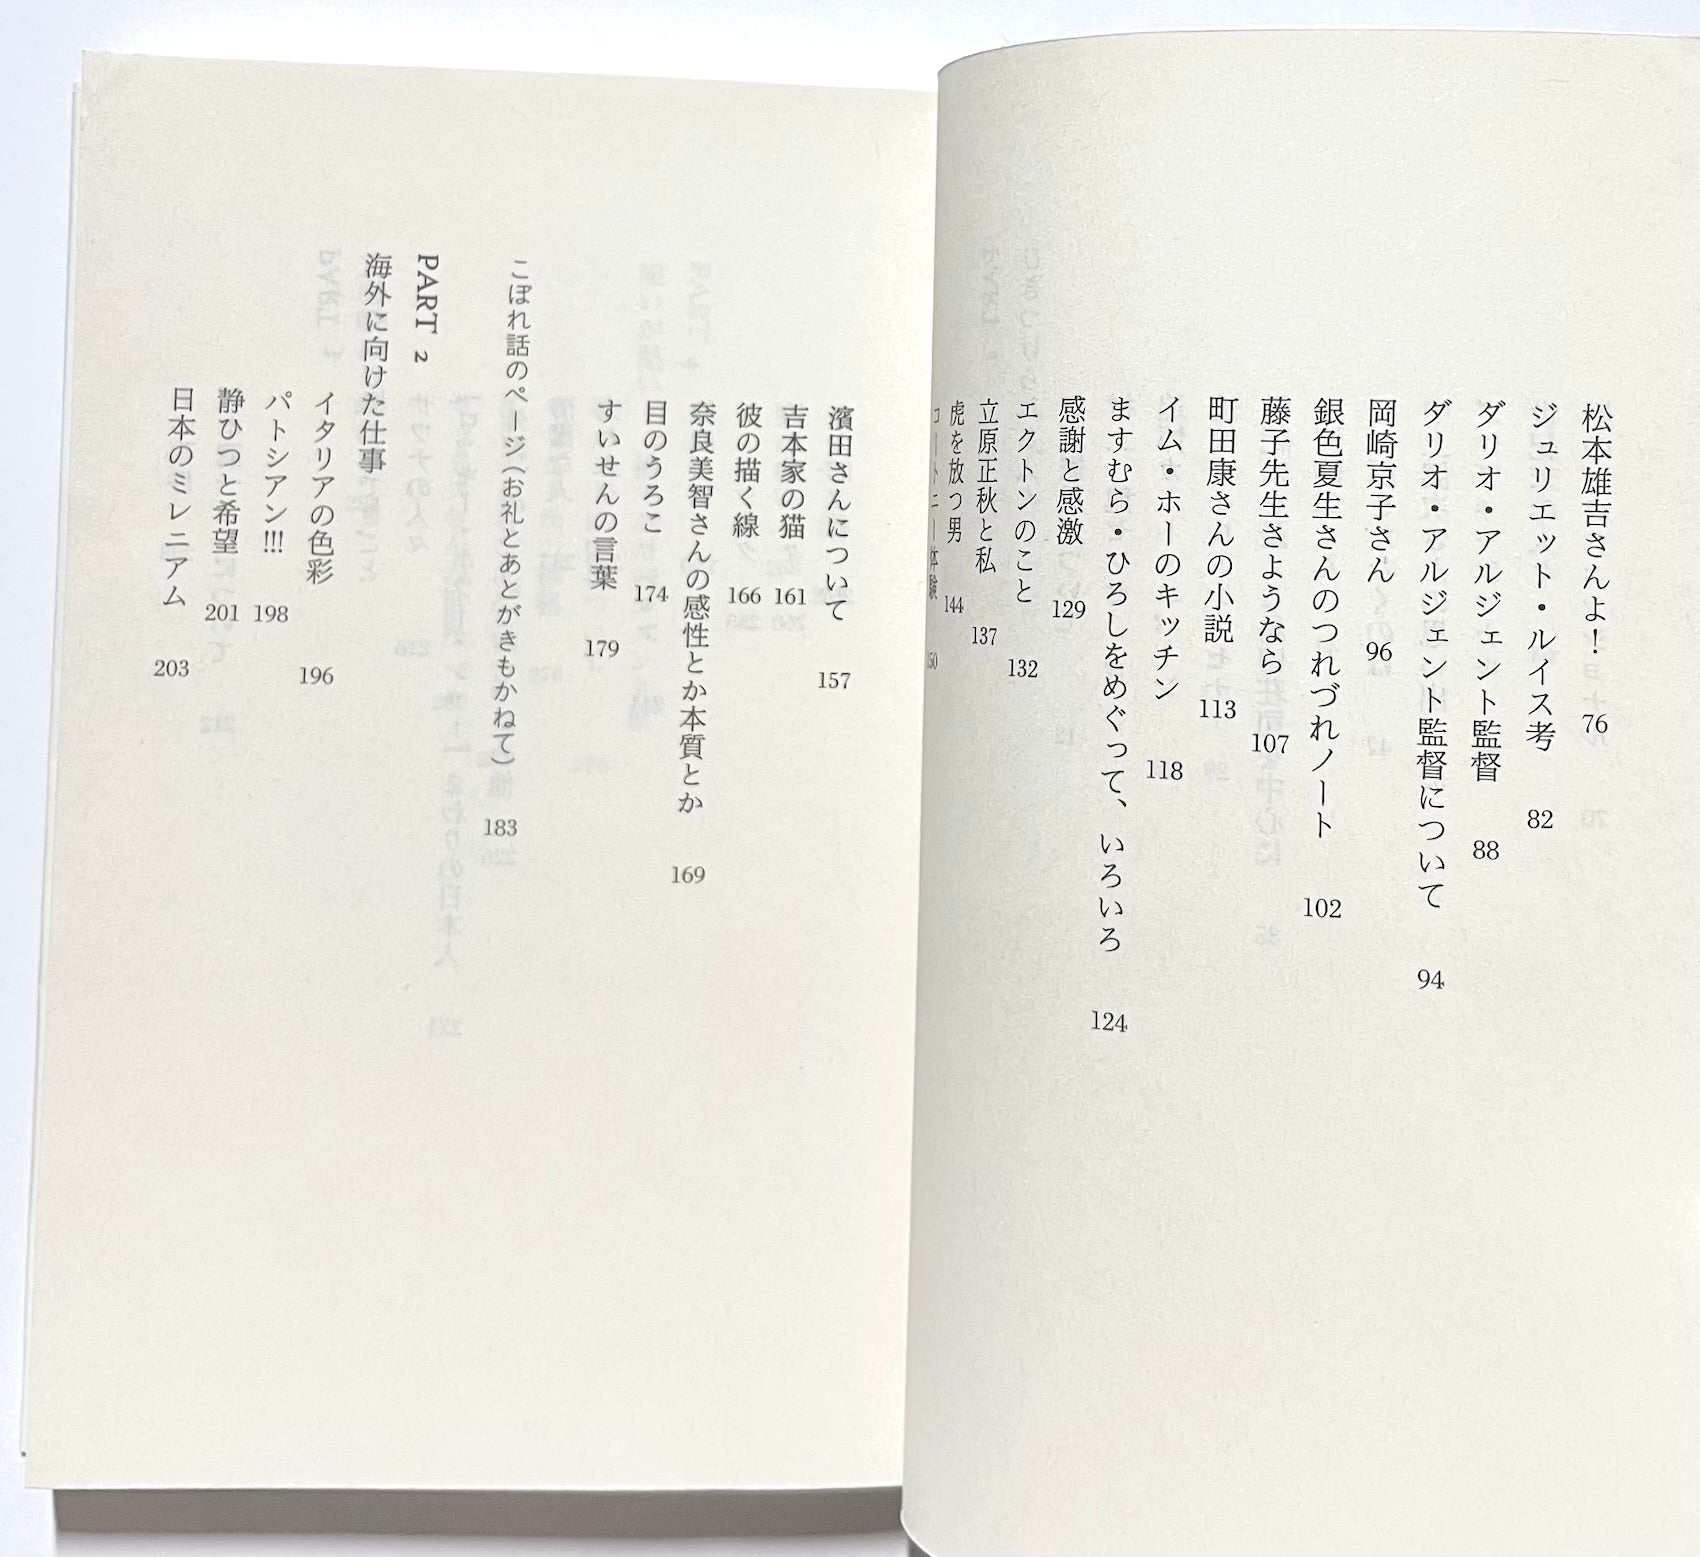 松本雄吉さんよ！ 76
ジュリエット・ルイス考 82
ダリオ・アルジェント監督 88
ダリオ・アルジェント監督について 94
岡崎京子さん 96
銀色夏生さんのつれづれノート 102
藤子先生さようなら 107
町田康さんの小説 113
イム・ホーのキッチン 118
ますむら・ひろしをめぐって、いろいろ 124
感謝と感激 129
エクトンのこと 132
立原正秋と私 137
虎を放つ男 144
コートニー体験 150
濱田さんについて 157
吉本家の猫 161
彼の描く線 166
奈良美智さんの感性とか本質とか 169
目のうろこ 174
すいせんの言葉 179
こぼれ話のページ（お礼とあとがきもかねて） 183
PART 2
海外に向けた仕事
イタリアの色彩 196
パトシアン!!! 198
静ひつと希望 201
日本のミレニアム 203